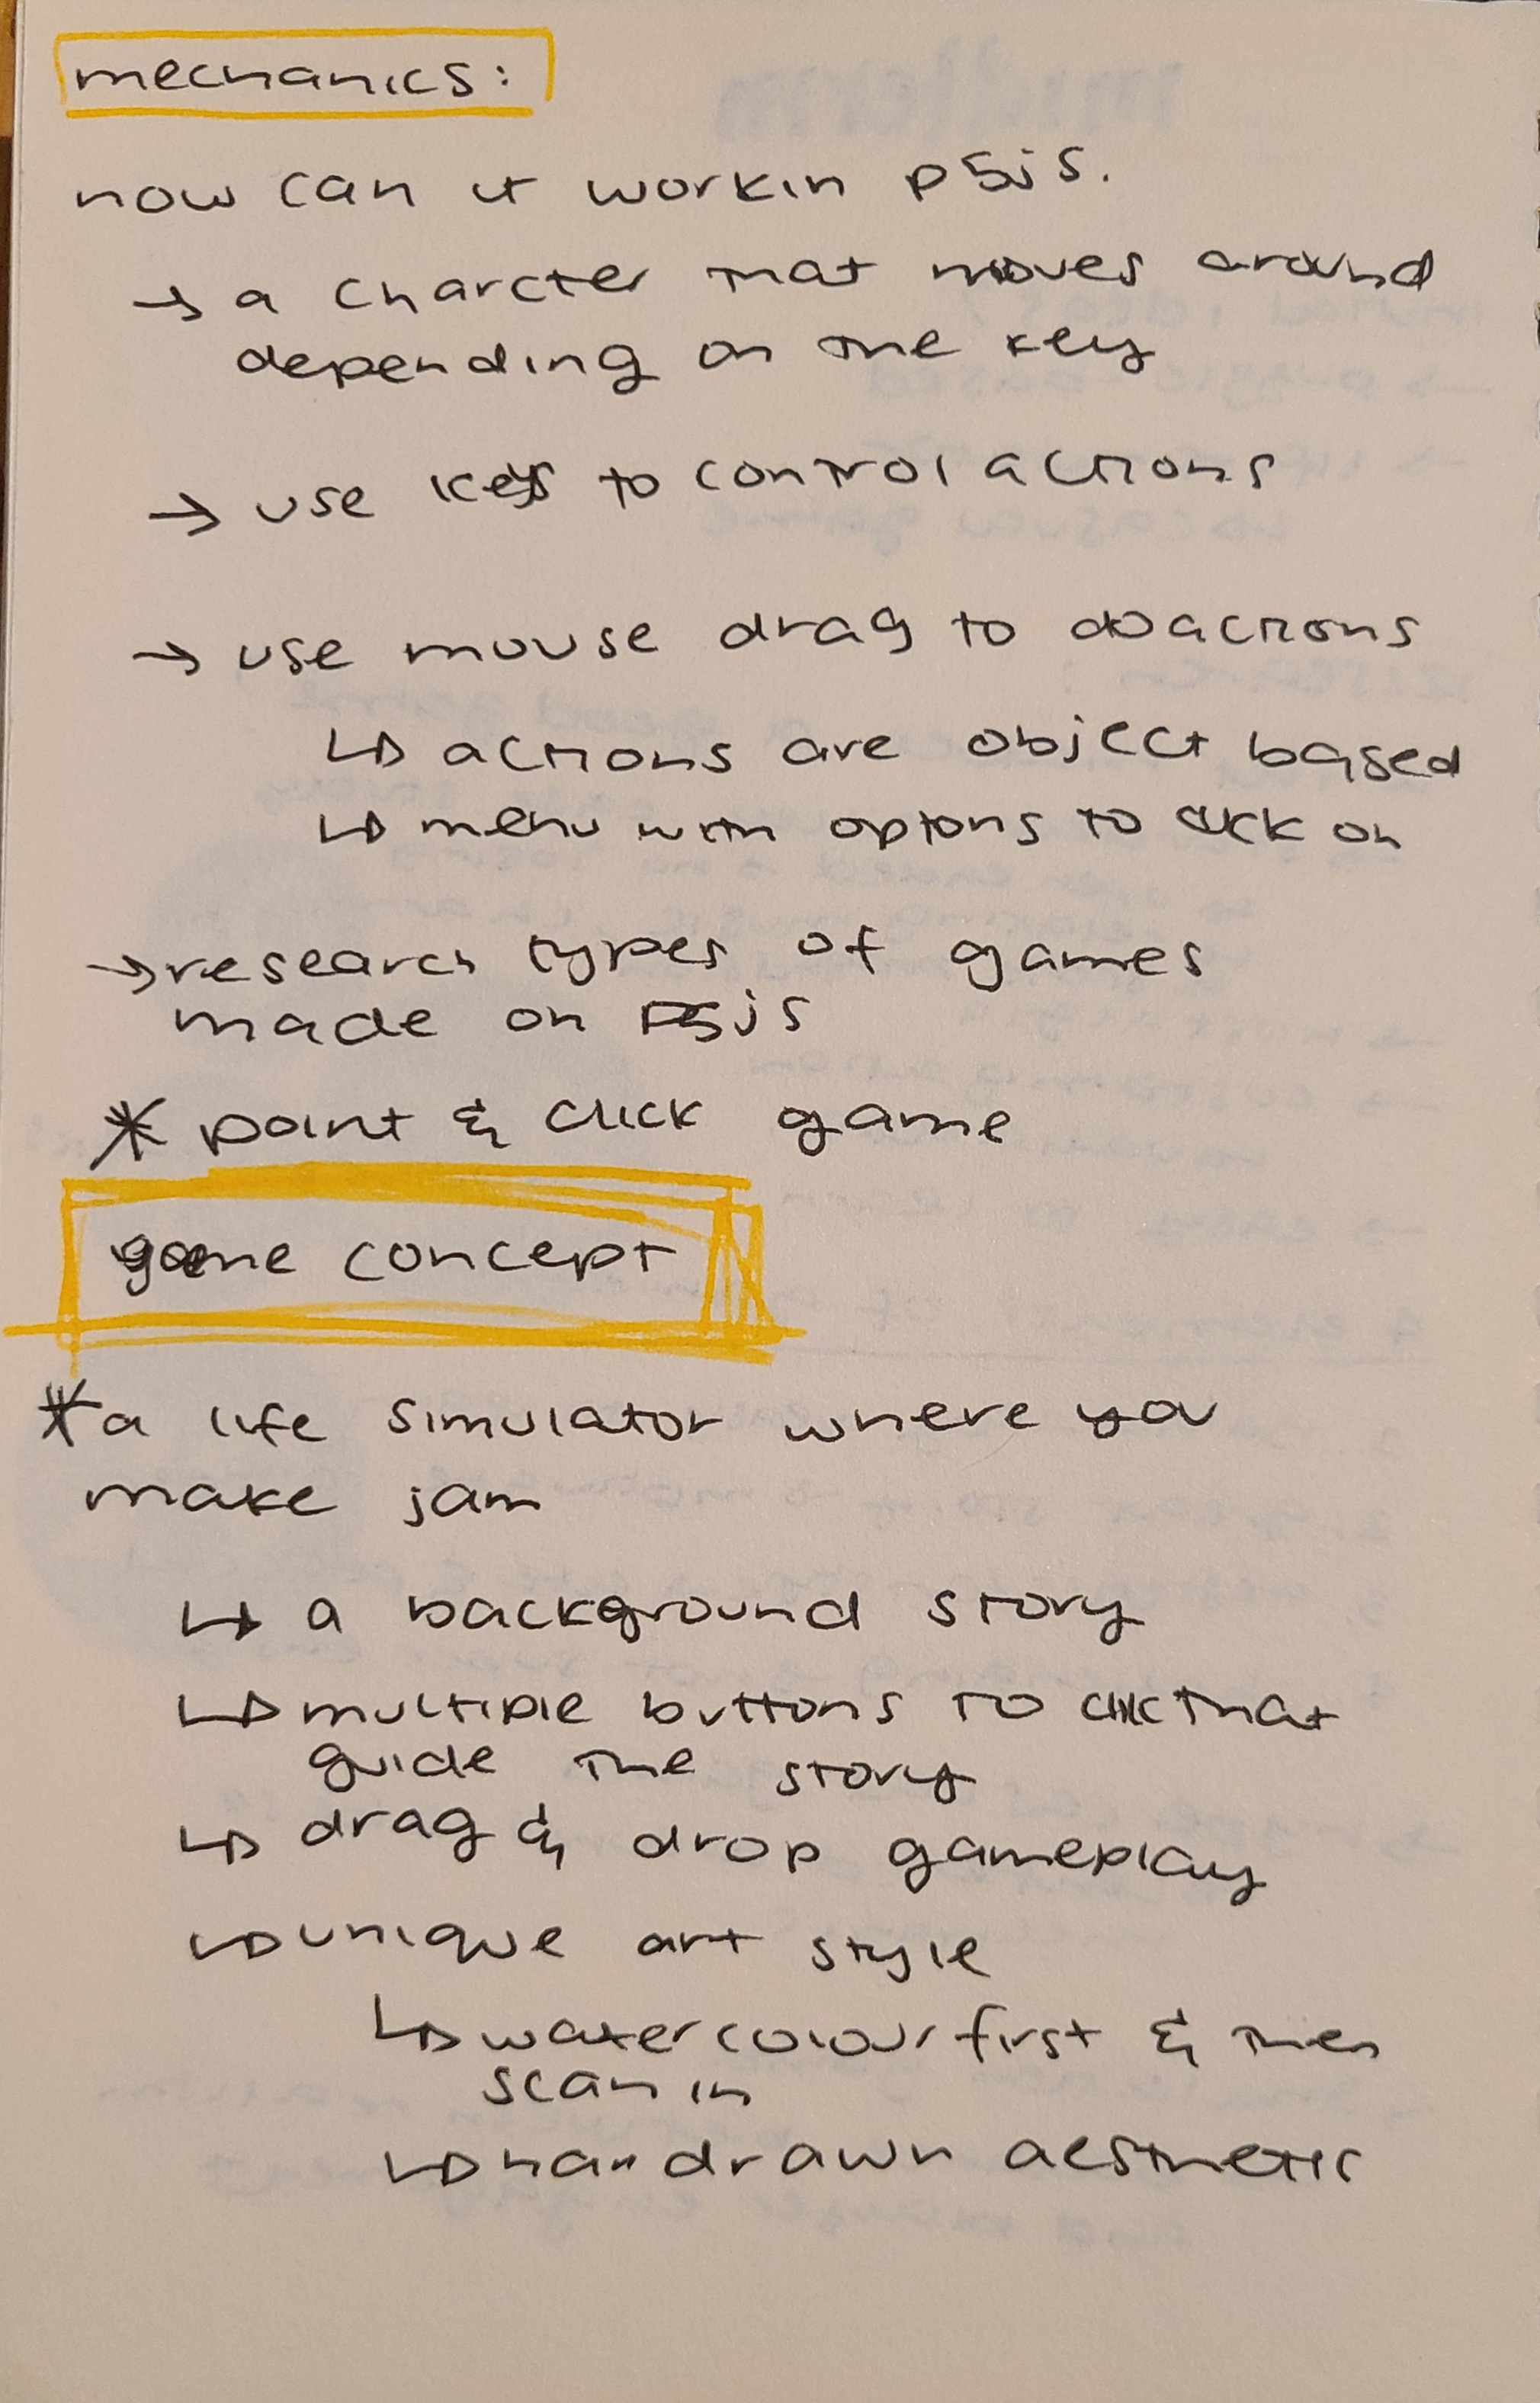 mechanics:
how can it work in p5js.
→ a charcter that moves around
depending on the key
→ use keys to control actions
→ use mouse drag to do actions
↳ actions are object based
↳ menu with optons to click on
→ research types of games
made on p5js
* point & click game
game concept
* a life simulator where you
make jam
↳ a background story
↳ multiple buttons to click that
guide the story
↳ drag & drop gameplay
↳ unique art style
↳ watercolour first & then
scan in
↳ handrawn aesthetic